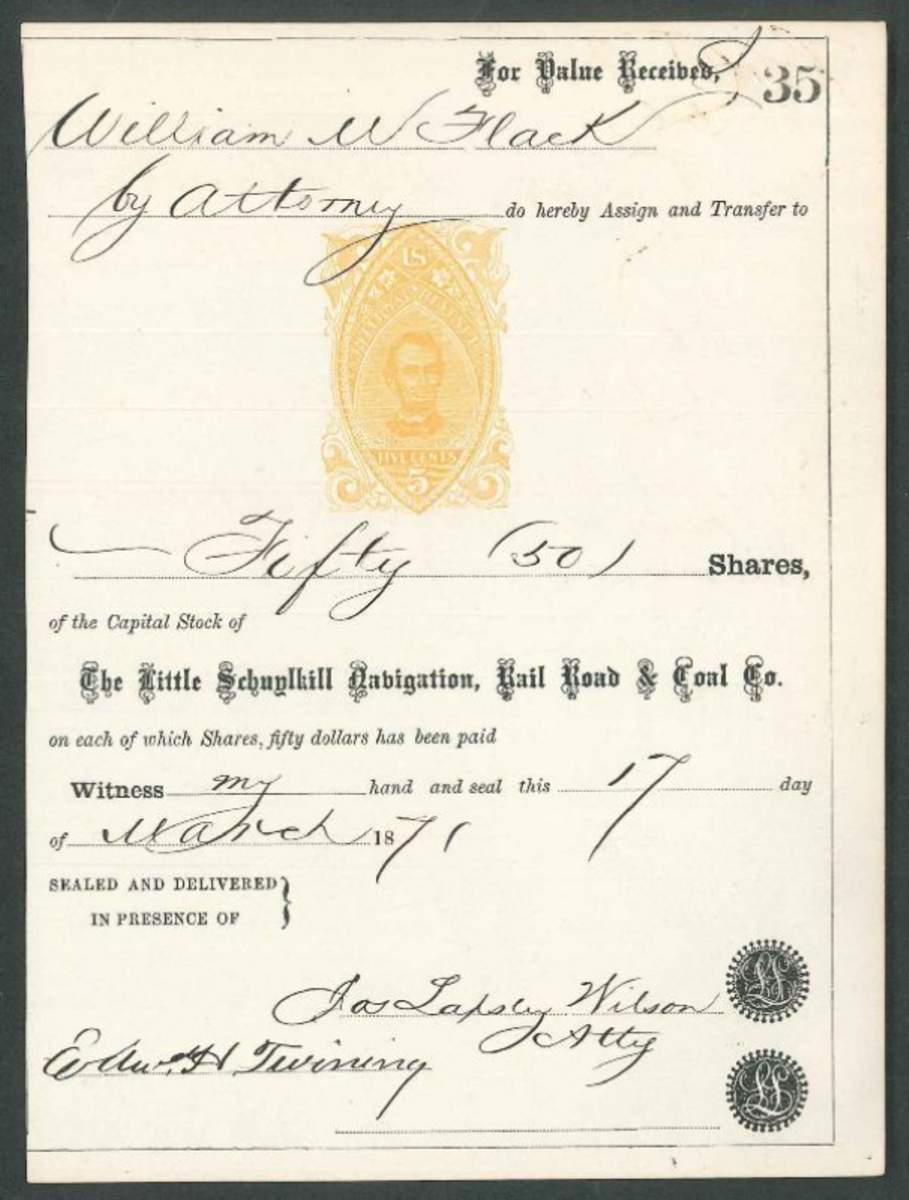 For Value Received, I 35
William W Flack
by Attorney do hereby Assign and Transfer to
US
INTERNAL REVENUE
FIVE CENTS
5
Fifty (50) Shares,
of the Capital Stock of
The Little Schuylkill Navigation, Rail Road & Coal Co.
on each of which Shares, fifty dollars has been paid
Witness my hand and seal this 17 day
of March 1871
SEALED AND DELIVERED }
IN PRESENCE OF
Jos Lapsley Wilson
Atty
Edw. H. Twining
LS
LS